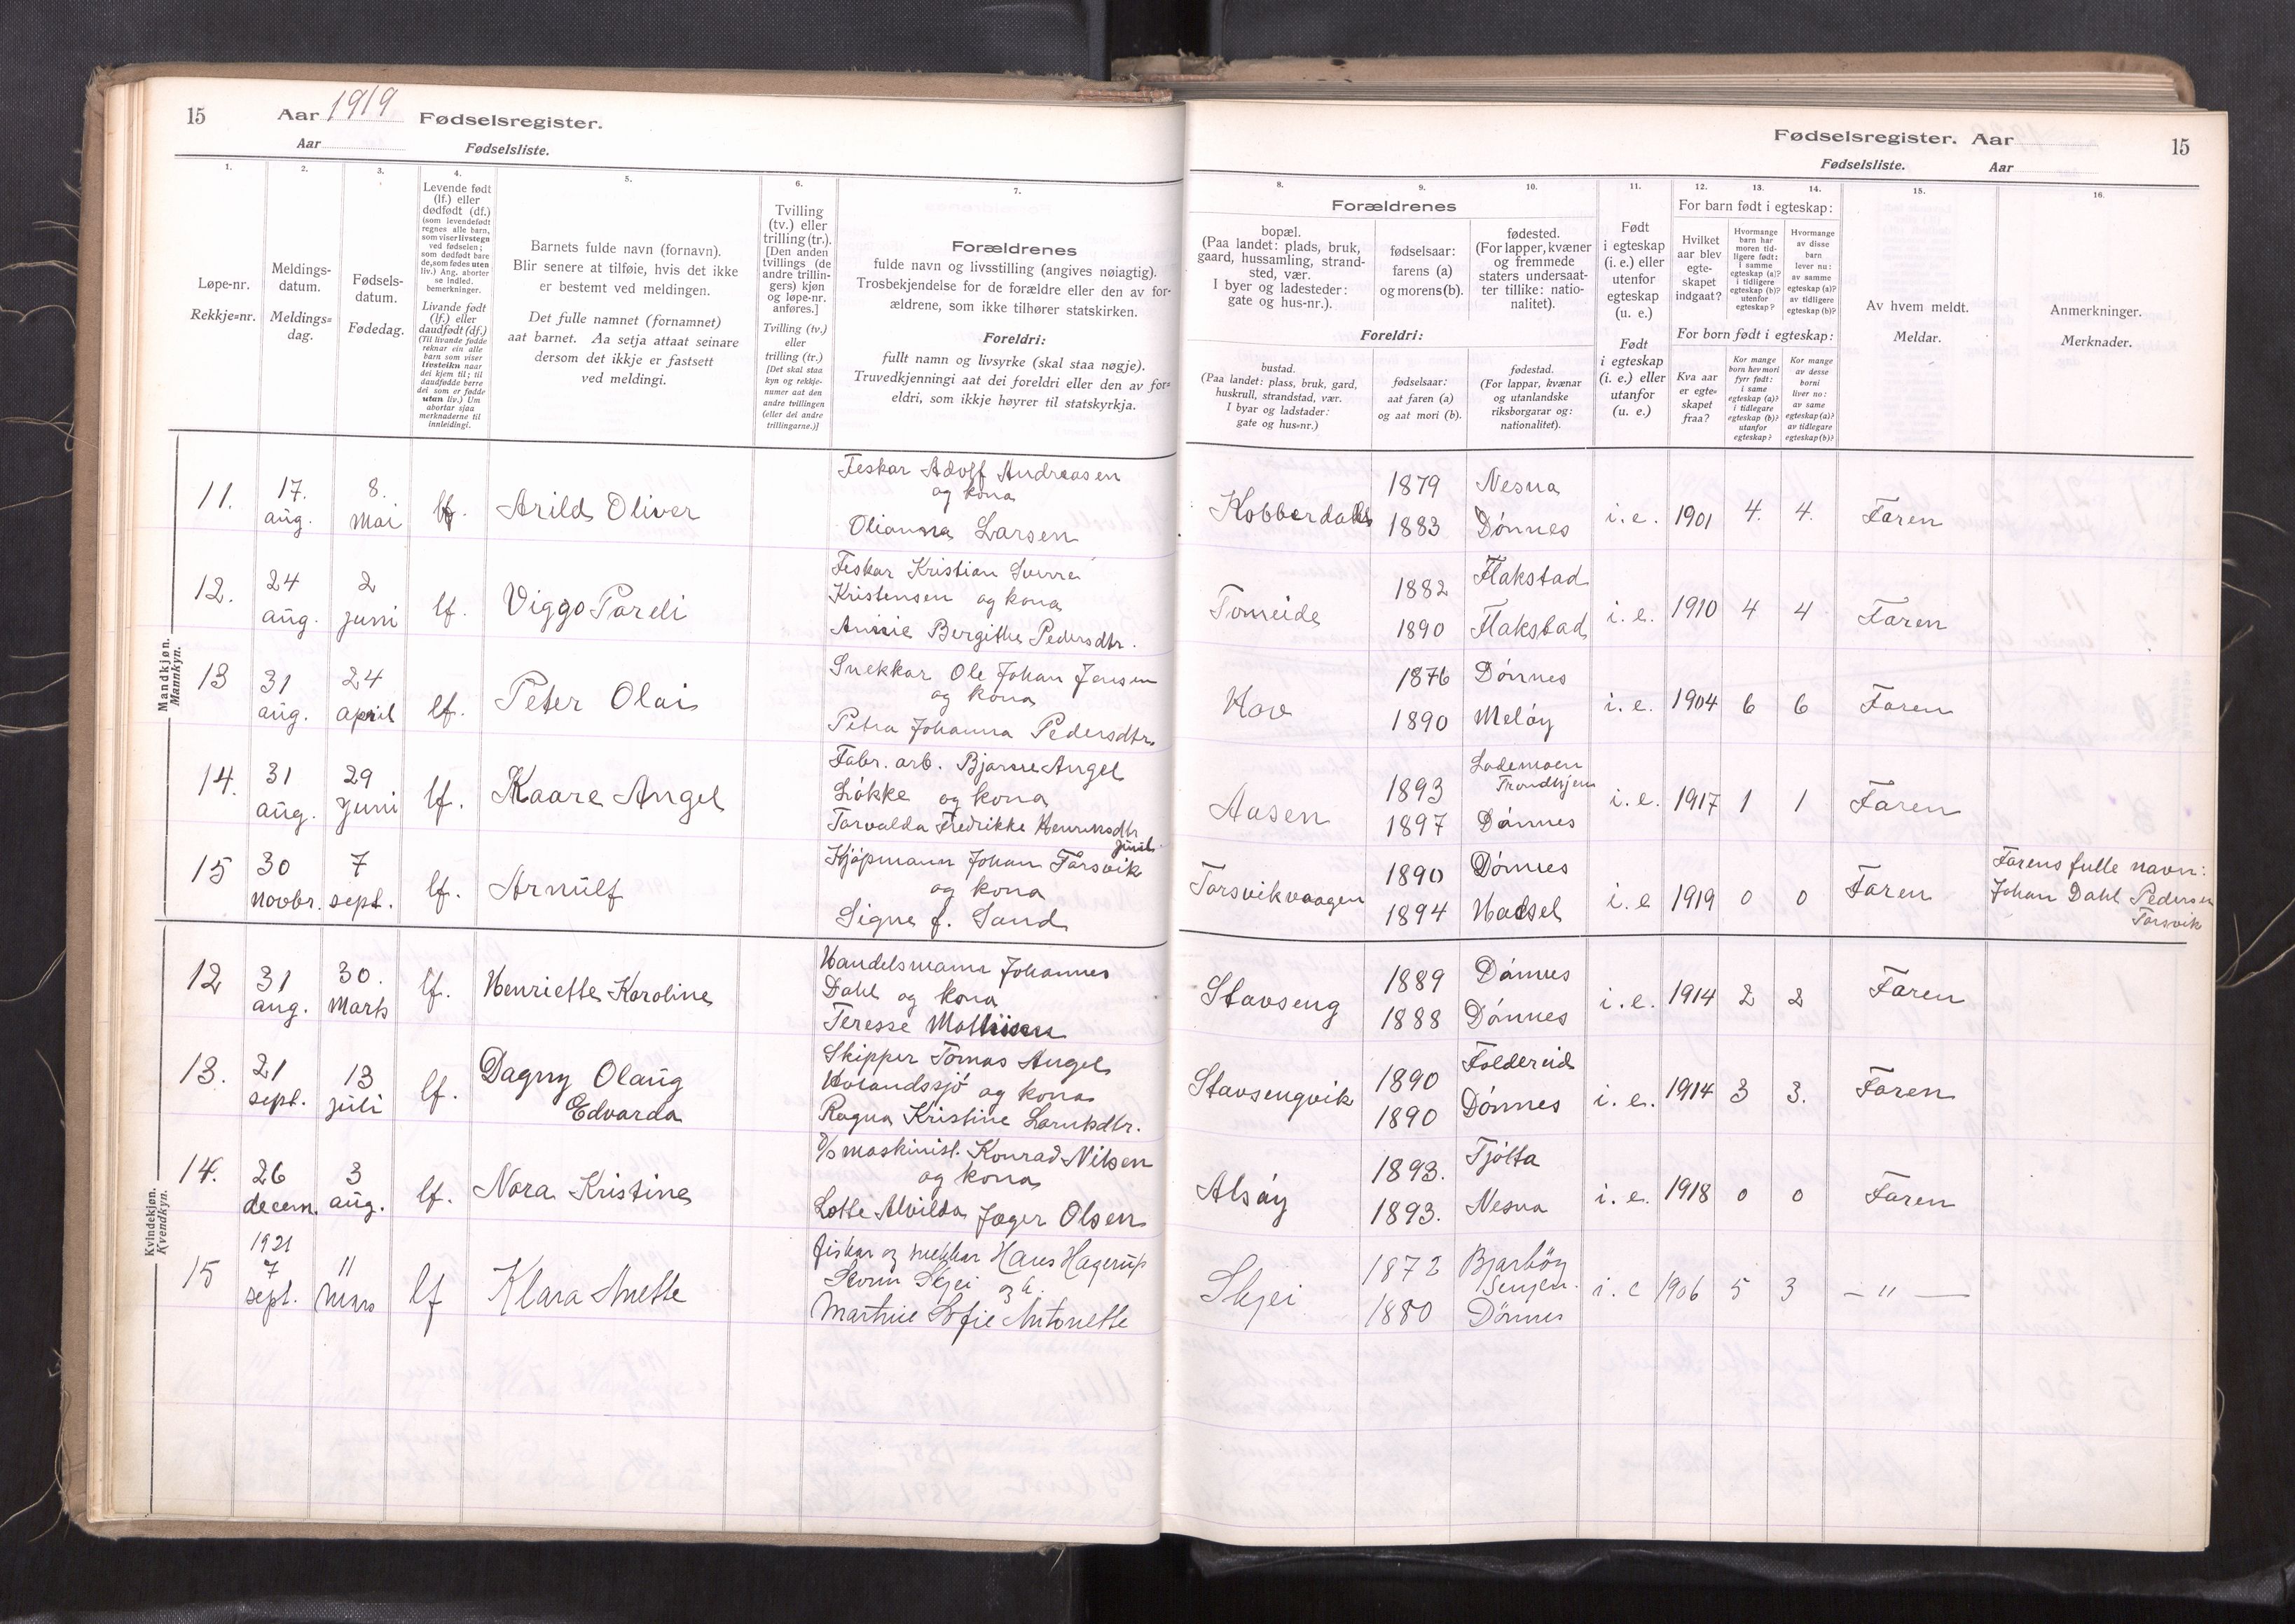 15
Aar 1919 Fødselsregister.
Aar Fødselsliste.
1.
Løpe-nr.
Rekkje-nr.
2.
Meldings-
datum.
Meldings-
dag.
3.
Fødsels-
datum.
Fødedag.
4.
Levende født
(lf.) eller
dødfødt (df.)
(som levendefødt
regnes alle barn,
som viser livstegn
ved fødselen;
som dødfødt bare
de, som fødes uten
liv.) Ang. aborter
se indled.
bemerkninger.
Livande født
(lf.) eller
daudfødt (df.)
(Til livande fødde
reknar ein alle
barn som viser
livsteikn naar
dei kjem til; til
daudfødde berre
dei som er fødde
utan liv.) Um
abortar sjaa
merknaderne til
innleidingi.
5.
Barnets fulde navn (fornavn).
Blir senere at tilføie, hvis det ikke
er bestemt ved meldingen.
Det fulle namnet (fornamnet)
aat barnet. Aa setja attaat seinare
dersom det ikkje er fastsett
ved meldingi.
6.
Tvilling
(tv.) eller
trilling (tr.).
[Den anden
tvillings (de
andre trillin-
gers) kjøn
og løpe-nr.
anføres.]
Tvilling (tv.)
eller
trilling (tr.)
[Det skal staa
kyn og rekkje-
numer aat den
andre tvillingen
(eller dei andre
trillingarne.)]
7.
Forældrenes
fulde navn og livsstilling (angives nøiagtig).
Trosbekjendelse for de forældre eller den av for-
ældrene, som ikke tilhører statskirken.
Foreldri:
fullt namn og livsyrke (skal staa nøgje).
Truvedkjenningi aat dei foreldri eller den av for-
eldri, som ikkje høyrer til statskyrkja.
Fødselsregister. Aar 15
Fødselsliste. Aar
Forældrenes
8.
bopæl.
(Paa landet: plads, bruk,
gaard, hussamling, strand-
sted, vær.
I byer og ladesteder:
gate og hus-nr.).
9.
fødselsaar:
farens (a)
og morens (b).
10.
fødested.
(For lapper, kvæner
og fremmede
staters undersaat-
ter tillike: natio-
nalitet).
Foreldri:
bustad.
(Paa landet: plass, bruk, gard,
huskrull, strandstad, vær.
I byar og ladstader:
gate og hus-nr.)
fødselsaar:
aat faren (a)
og aat mori (b).
fødestad.
(For lappar, kvænar
og utanlandske
riksborgarar og:
nationalitet).
11.
Født
i egteskap
(i. e.) eller
utenfor
egteskap
(u. e.)
Født
i egteskap
(i. e.) eller
utanfor
(u. e.)
For barn født i egteskap:
12.
Hvilket
aar blev
egte-
skapet
indgaat?
13.
Hvormange
barn har
moren tid-
ligere født:
i samme
egteskap (a)?
i tidligere
egteskap (b)?
utenfor
egteskap?
14.
Hvormange
av disse
barn
lever nu:
av samme
egteskap (a)?
av tidligere
egteskap (b)?
For born født i egteskap:
Kva aar
er egte-
skapet
fraa?
Kor mange
born hev mori
fyrr født:
i same
egteskap (a)?
i tidlegare
egteskap (b)?
utanfor
egteskap?
Kor mange
av desse
borni
liver no:
av same
egteskap (a)?
av tidlegare
egteskap (b)?
15.
Av hvem meldt.
Meldar.
16.
Anmerkninger.
Merknader.
Mandkjøn.
Mannkyn.
11. 17. aug. 8. Mai lf. Arild Oliver
Feskar Adolf Andreasen
og kona
Olianna Larsen
Kobberdahl 1879 Nesna
1883 Dønnes
i. e. 1901 4. 4. Faren
12. 24 aug. 2 juni lf. Viggo Pareli
Feskar Kristian Sverre
Kristensen og kona
Annie Bergithe Pedersdtr.
Tomeide 1882 Flakstad
1890 Flakstad
i. e. 1910 4 4 Faren
13 31 aug. 24 april lf. Peter Olai
Snekkar Ole Johan Jensen
og kona
Petra Johanna Pedersdtr.
Hov 1876 Dønnes
1890 Meløy
i. e. 1904 6 6 Faren
14. 31 aug. 29 juni lf. Kaare Angel
Fabr. arb. Bjarne Angel
Løkke og kona
Torvalda Fredrikke
Aasen 1893 Lademoen
Trondhjem
1897 Dønnes
i. e. 1917 1 1 Faren
15 30 novbr. 7 sept. lf. Arnulf
Kjøpmann Johan Forsvik
og kona
Signe f. Sand
1890 Dønnes
1894 Hadsel
i. e 1919 0 0 Faren
Farens fulle navn:
Johan Dahl Pedersen
Kvindekjøn.
Kvendkyn.
12 31 aug. 30. Mars lf. Henriette Karoline
Handelsmann Johannes
Dahl og kona
Teresse
Stavseng 1889 Dønnes
1888 Dønnes
i. e. 1914 2 2 Faren
13. 21 sept. 13 juli lf. Dagny Olaug
Edvarda
Skipper Tomas Angel
Holandssjø og kona
Ragna Kristine
Stavsengvik 1890 Foldereid
1890 Dønnes
i. e. 1914 3 3. Faren
14. 26 decem. 3 aug. lf. Nora Kristine
D/s maskinist. Konrad Nilsen
og kona
Lotte Alvilda Jæger Olsen
Alsøy 1893. Tjøtta
1893. Nesna
i. e. 1918 0 0 Faren
15 1921 7 sept. 11 Mars lf Klara Anette
fiskar og snekkar Hans Hagerup
Skjei og k.
Martine Sofie Antonette
Skjei 1872 Bjarkøy
Senjen.
1880 Dönnes
i. e 1906 5 3 — " —